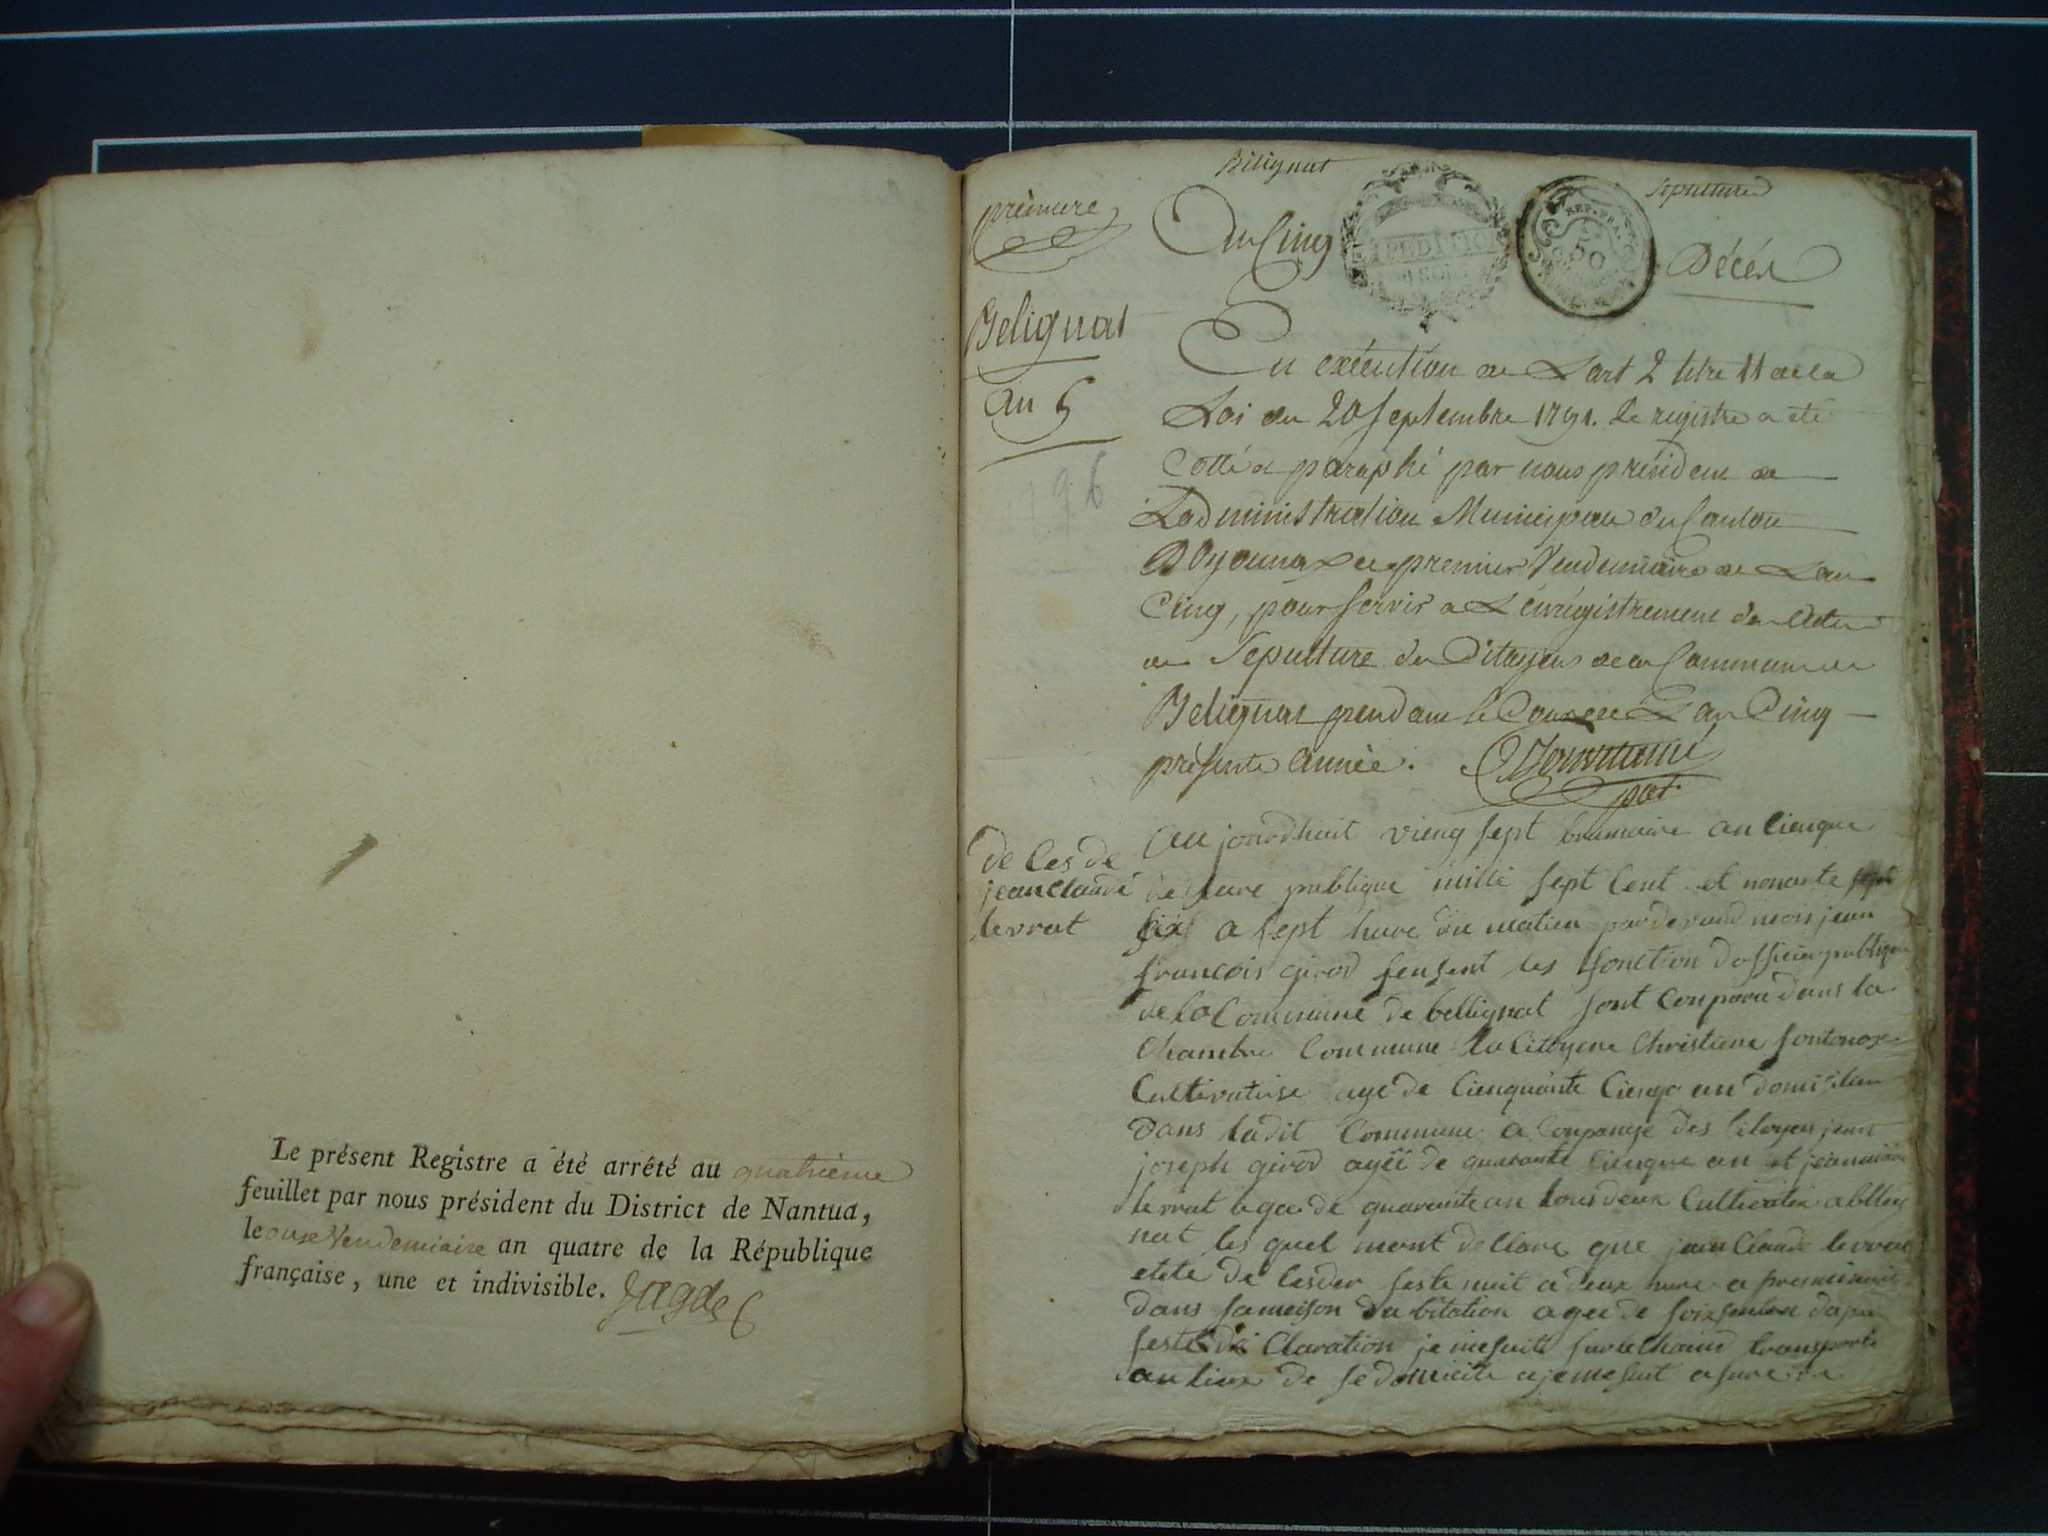 Le présent Registre a été arrêté au quatrième
feuillet par nous président du District de Nantua,
le onze Vendemiaire an quatre de la République
française, une et indivisible. Jagde
Bélignat
Sepulture
première
An Cinq
EXPEDITION
REP. FRA.
50
Décès
Belignat
An 5
96
En exécution de L'art 2 titre 11 de la
Loi du 20 Septembre 1791. le registre a été
Cotté et paraphé par nous président de
L'administration Municipale du Canton
D'Oyonnax le premier Vendemiaire de L'an
Cinq, pour servir a L'enrégistrement des Actes
de Sepulture des Citoyens de la Commune de
Belignat pendant le Cours de L'an Cinq
présente année.
pdt.
de Ces de
jean Claude
levrat
Au jourdhuit vieng sept brumaire an Cienque
de leure publique mille sept Cent et nonante sept
six a sept hure du matien par devand mois jean
francois girod fensent les fonction dofficier publique
de la Commune de bellignat sont Conparu dans la
Chambre Commune la Citoyene Christiene fontonax
Cultivatrise age de Cienquante Cienq an domicilier
Dans ladit Commune a Conpange des Citoyen jean
joseph girod agéé de quarante Cienque an et jean marie
levrat agee de quarante an tous deux Cultivater a bllig
nat les quel mont deClare que jean Claude levrat
etete de Cesder seste nuit a deux hure a premie nuit
dans sa meison dabitation agee de soixsente dapre
seste de Claration je me suit sur le Chand transporte
au lieux de se domicile e je me suit asure de